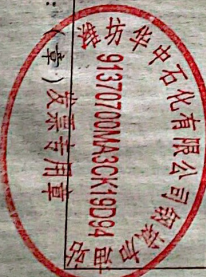 潍坊华中石化有限公司加油站
91370700MA3CK19D94
发票专用章
：（章）